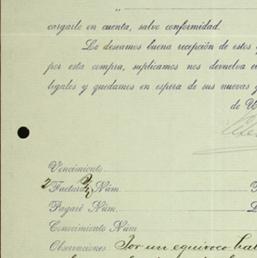 cargarlo en cuenta, salvo conformidad.
Le deseamos buena recepción de estos
por esta compra, suplicamos nos devuelva
legales y quedamos en espera de sus nuevas
de V
Vencimiento
2 Factura Núm.
Pagaré Núm.
Conocimiento Núm
Observaciones Por un equivoco